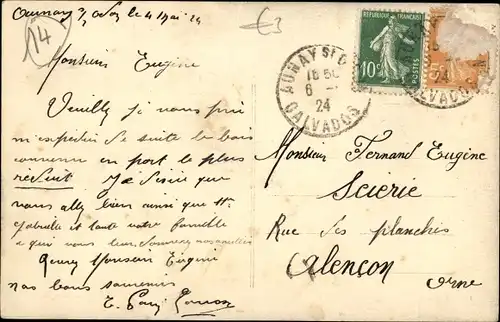 Aunay s/ Odon le 4 Mai 24
14
€3
Monsieur Eugène
Veuillez je vous prie
m'expédier de suite le bois
convenu en port le plus
réduit Je désire que
vous allez bien ainsi que
et toute votre famille
a qui vous leur donnerez
Monsieur Eugène
nos bons souvenirs
RÉPUBLIQUE FRANÇAISE
10c
POSTES
AUNAY St
15 50
6 -
24
CALVADOS
24
CALVADOS
Monsieur Fernand Eugène
Scierie
Rue des planches
Alençon
Orne